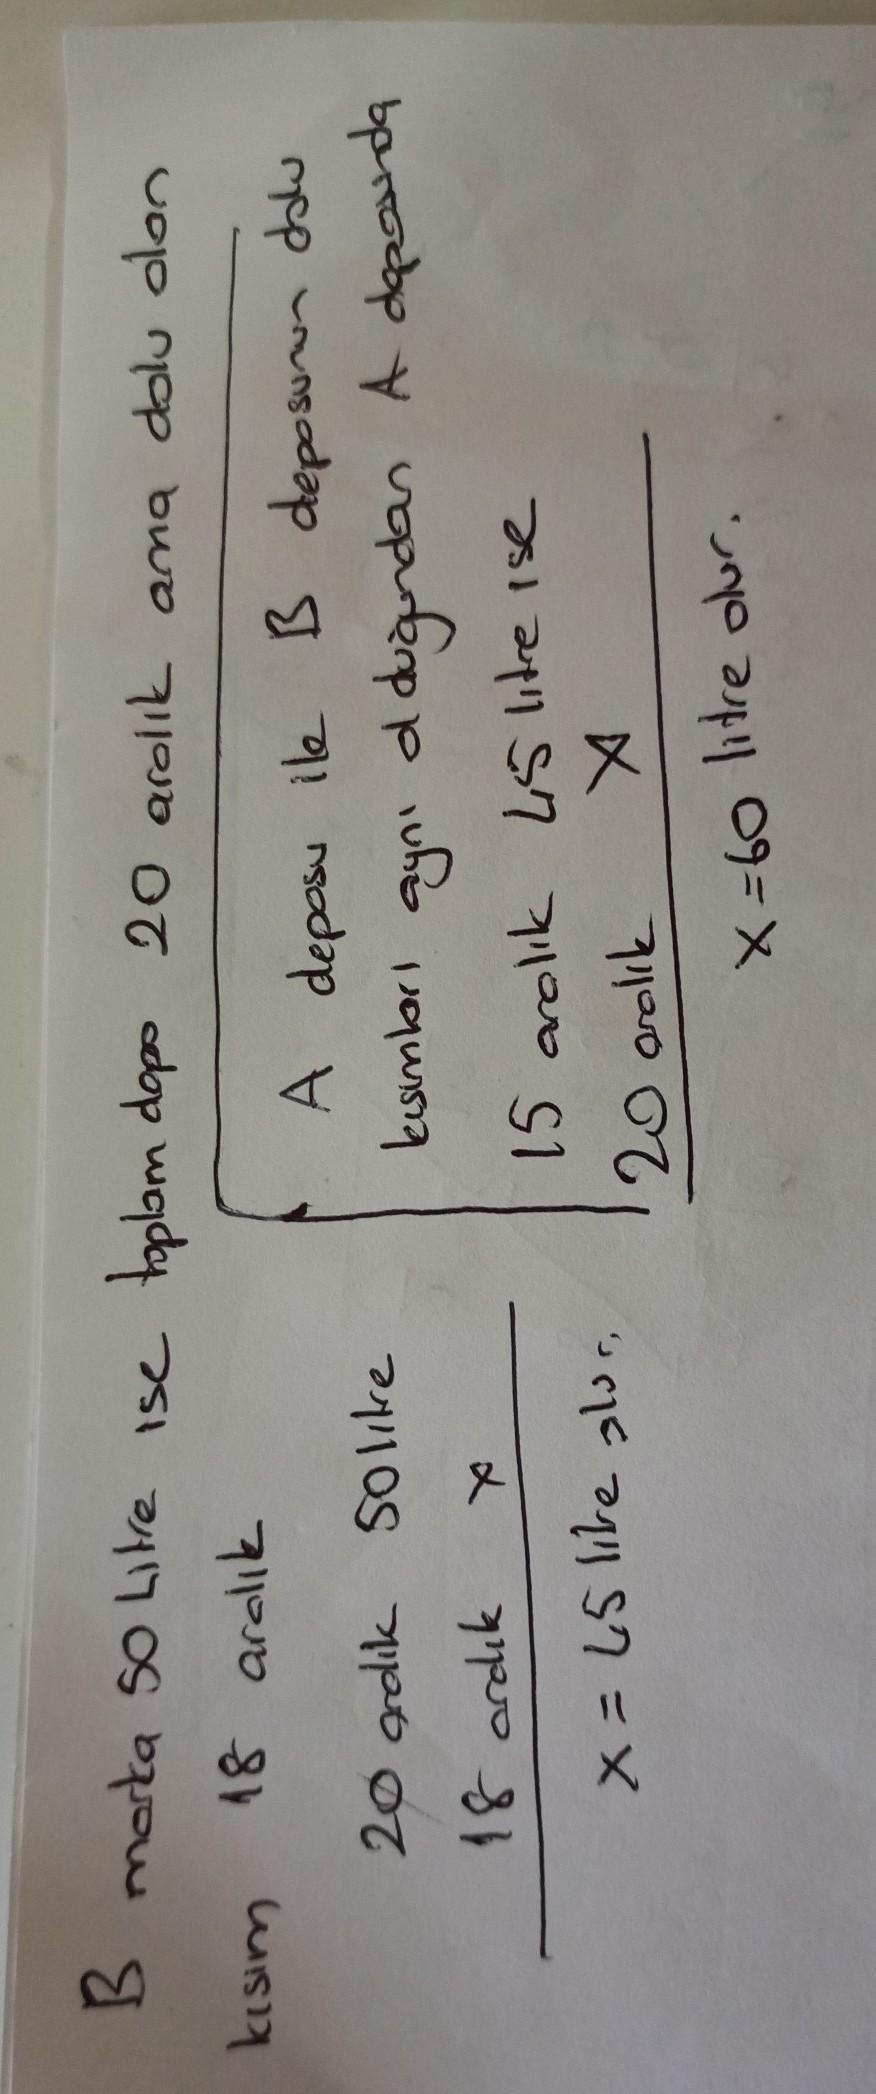 B marka 50 Litre ise toplam depo 20 aralık ama dolu olan
kısım 18 aralık
20 aralık 50 litre
18 aralık x
x = 45 litre olur.
A deposu ile B deposunun dolu
kısımları aynı olduğundan A deposunda
15 aralık 45 litre ise
20 aralık X
x = 60 litre olur.